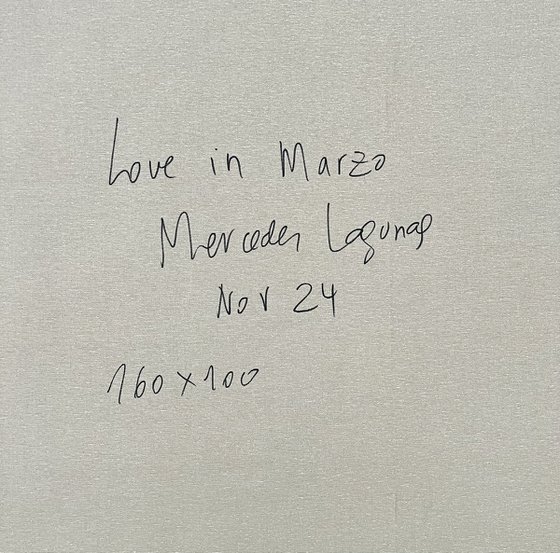 Love in Marzo
Mercedes Lagunas
Nov 24
160x100